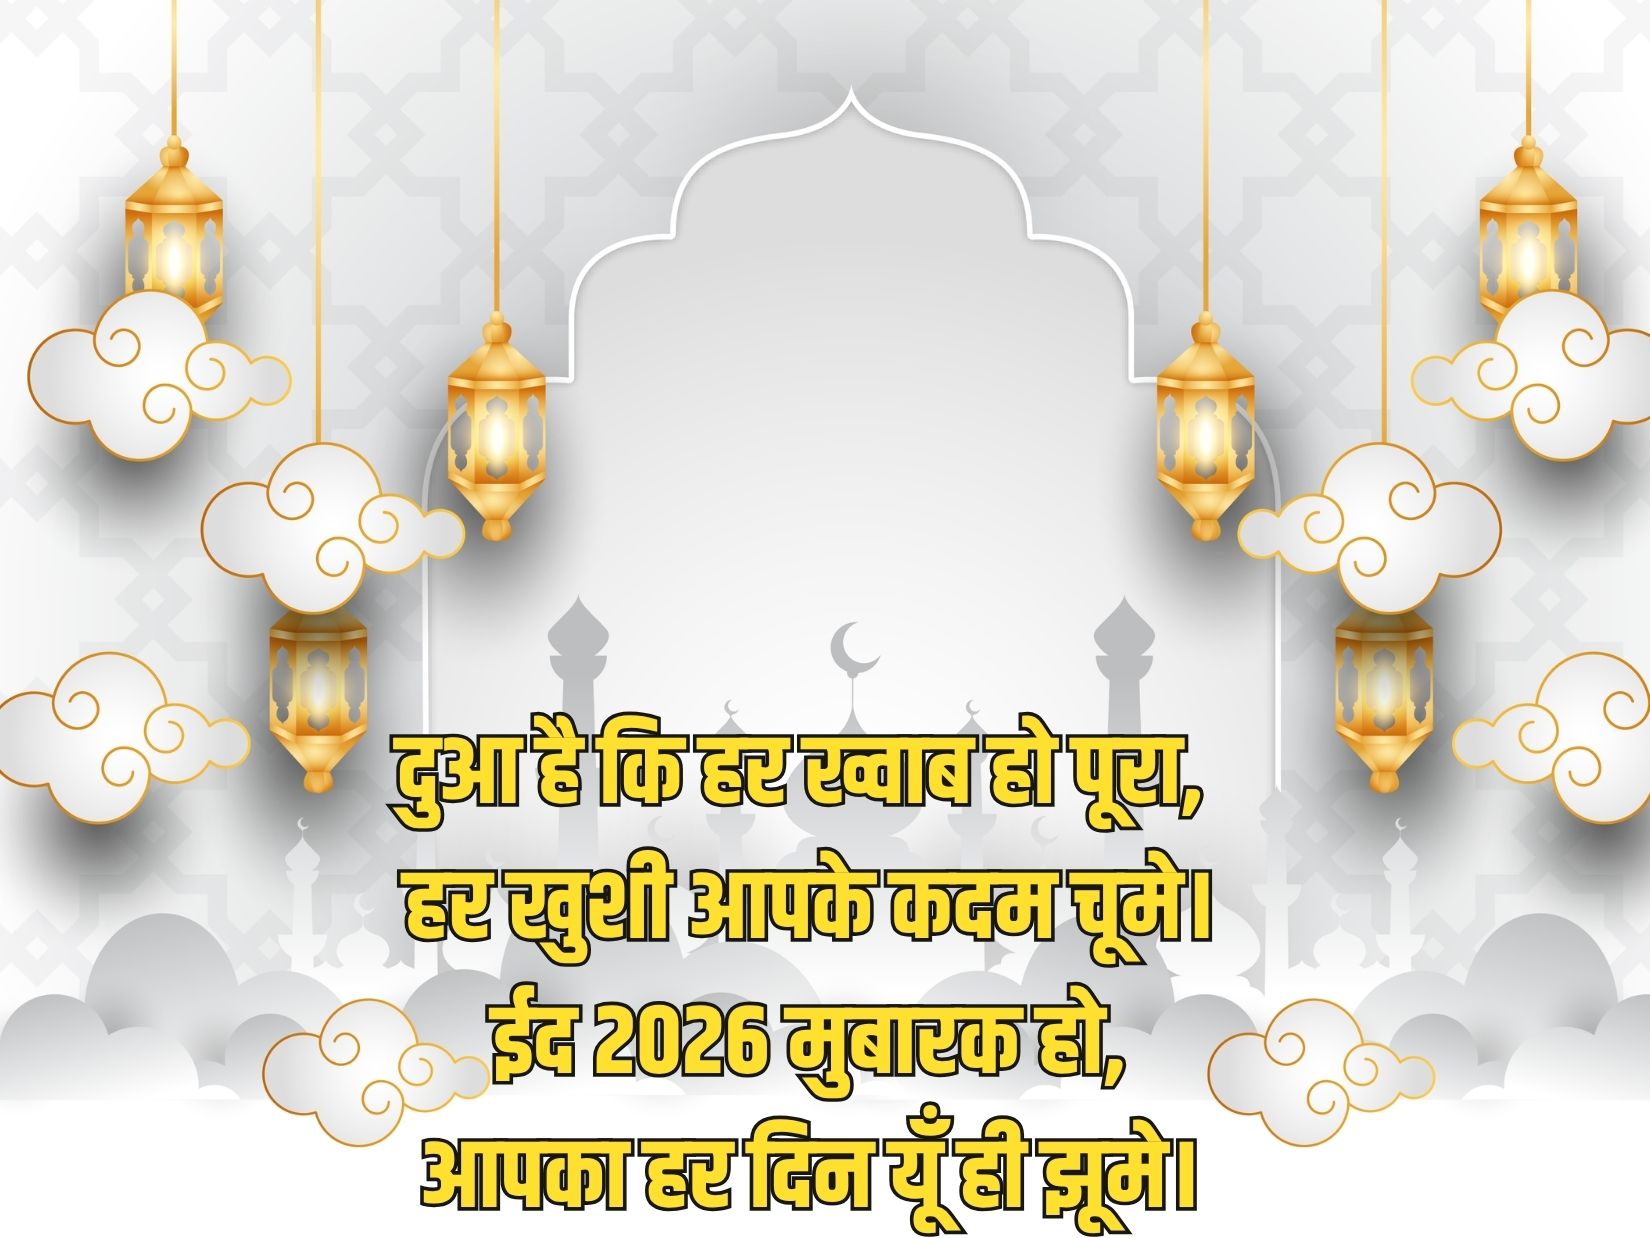 दुआ है कि हर ख्वाब हो पूरा,
हर खुशी आपके कदम चूमे।
ईद 2026 मुबारक हो,
आपका हर दिन यूँ ही झूमे।